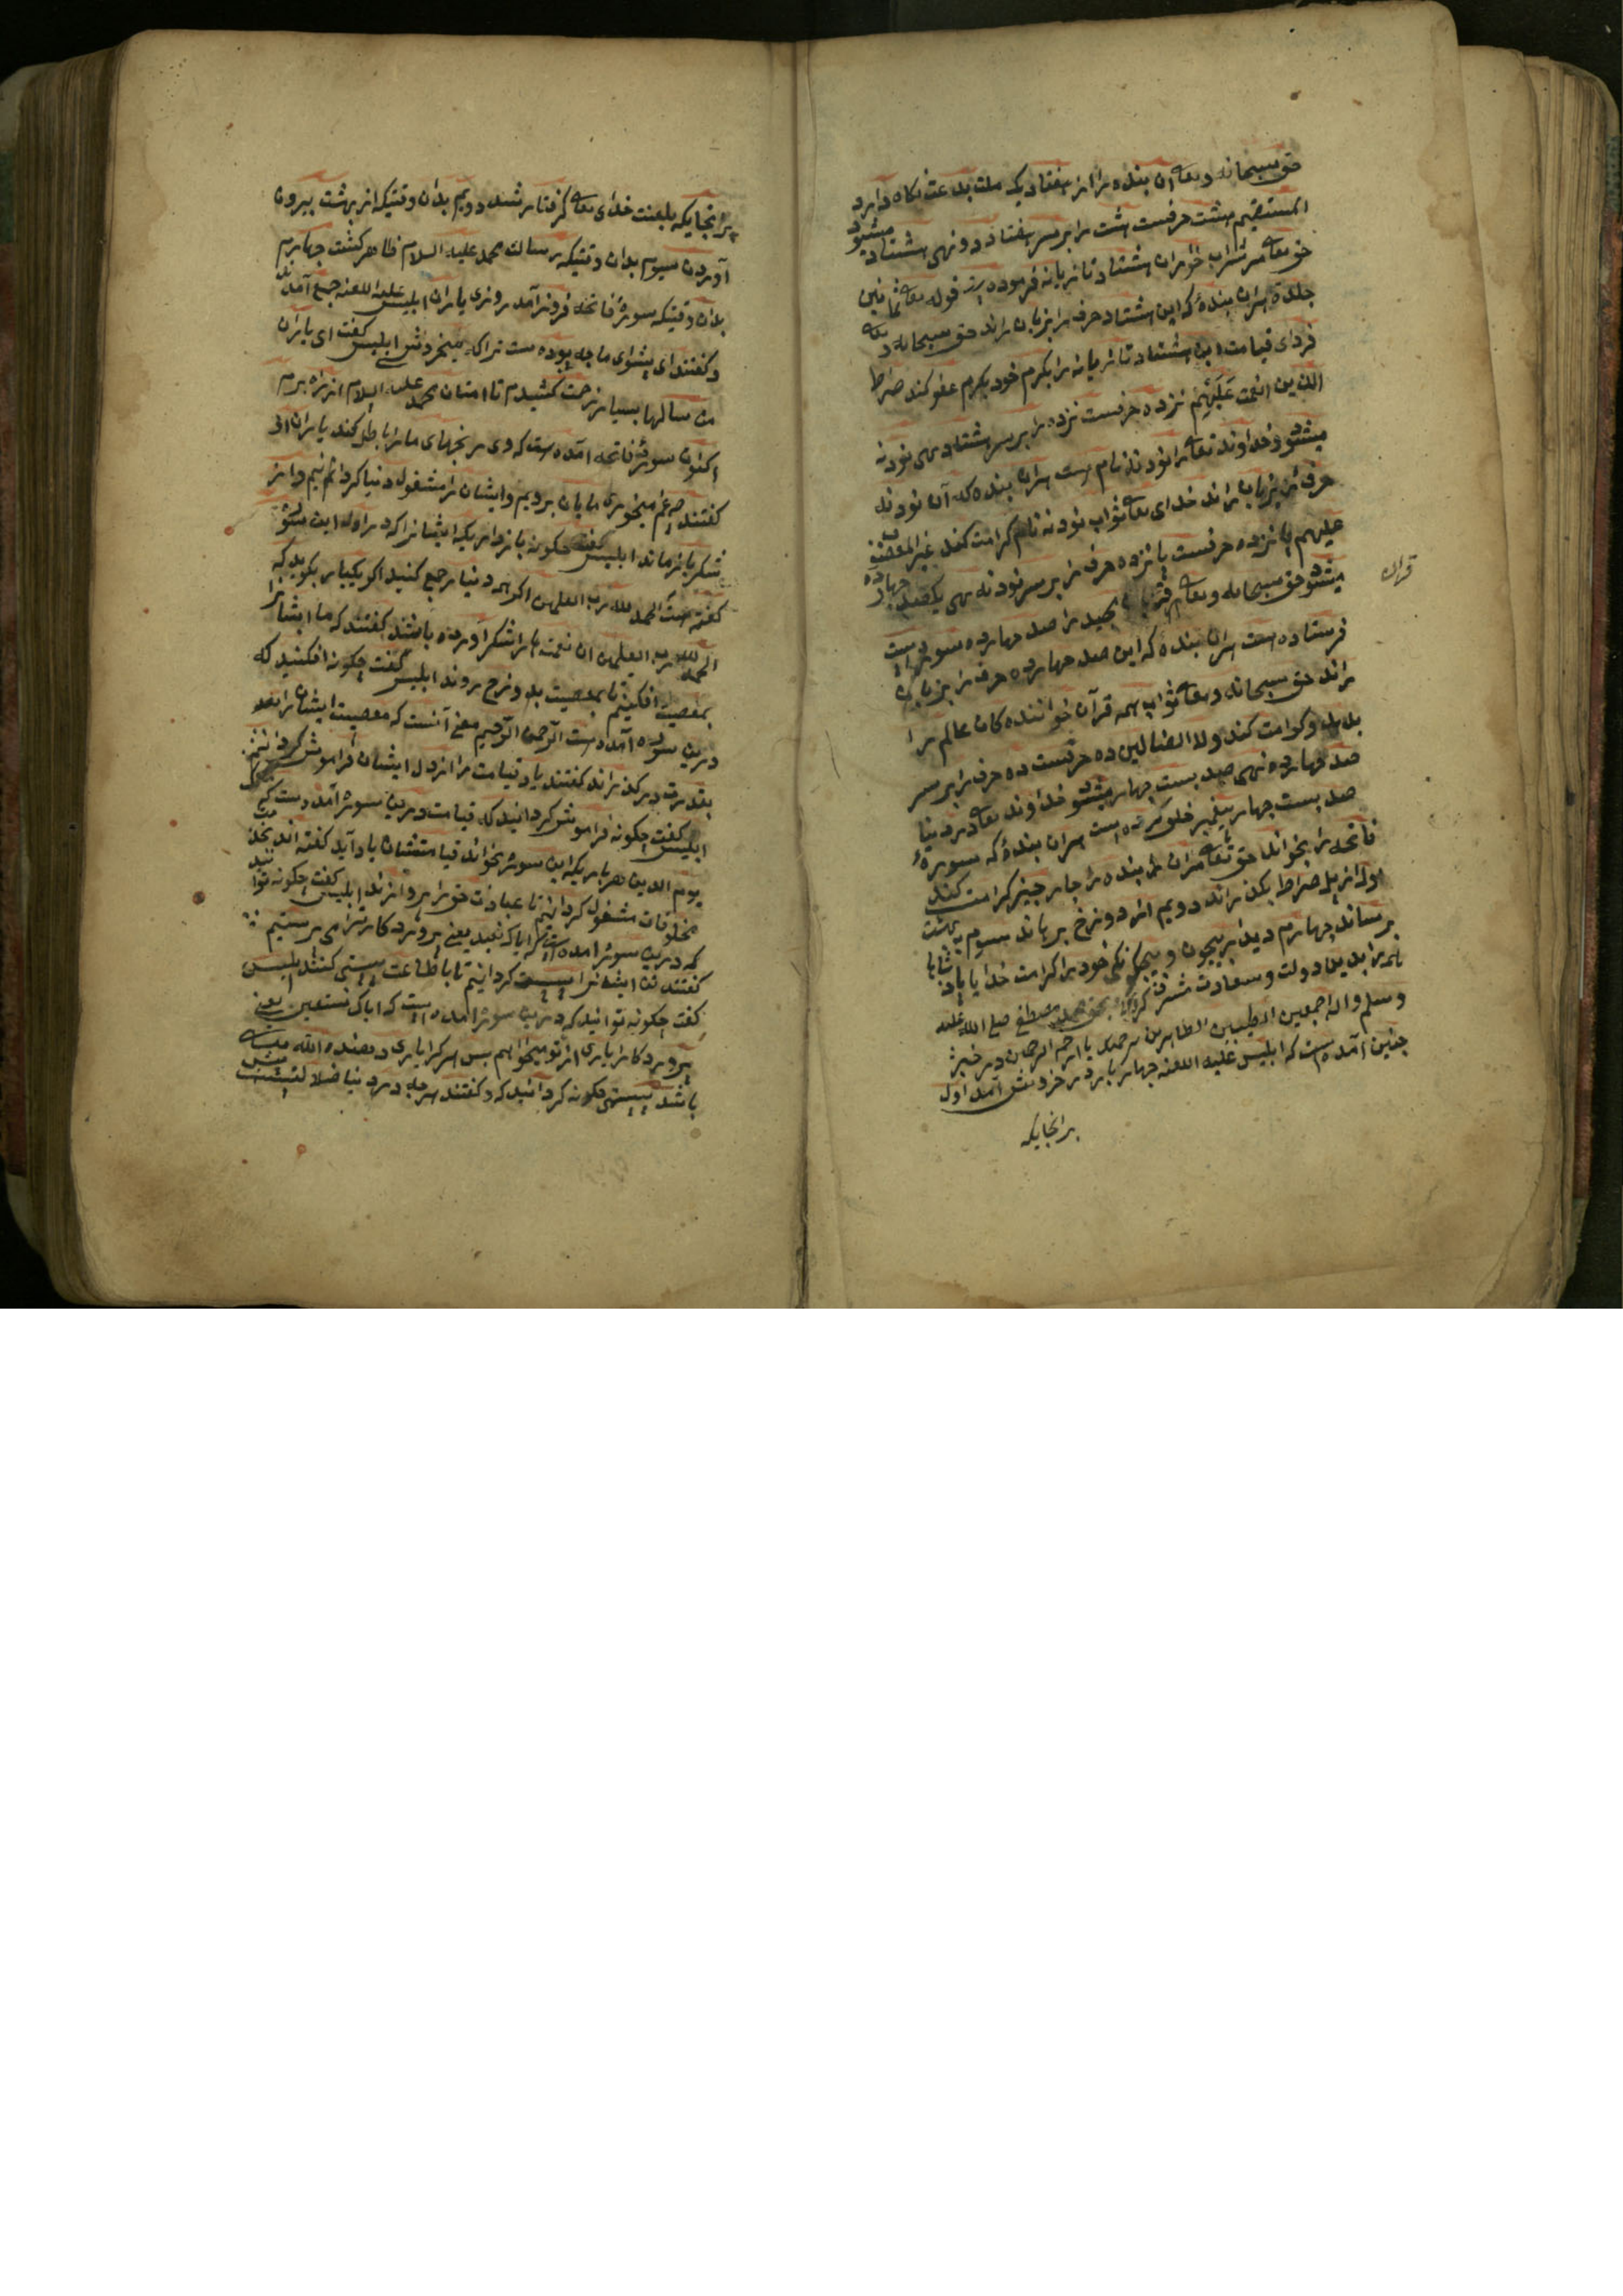 حق سبحانه و تعا آن بنده را از هفتاد یک ملت بدعت نکاه دارد
المستقیم هشت حرفست هشت را بر سر هفتاد دو نهی هشتاد میشود
حق تعا مر شراب خوران هشتاد تازیانه فرموده است قوله تعا ثمانین
جلدة هران بندهٔ که این هشتاد حرف را بزبان راند حق سبحانه و تعا
فردای قیامت این هشتاد تازیانه را بکرم خود بکرم عفو کند صراط
الذین انعمت علیهم نزده حرفست نزده را بر سر هشتاد نهی نود نه
میشود خداوند تعا را نود نه نام است هران بنده که آن نود نه
حرف را بزبان راند خدای تعا ثواب نود نه نام کرامت کند غیر المغضوب
علیهم پانزده حرفست پانزده حرف را بر سر نود نه نهی یکصد چهارده
میشود حق سبحانه و تعا مجید را صد چهارده سوره است
قرآن
فرستاده است هران بندهٔ که این صد چهارده حرف را بزبان
راند حق سبحانه و تعا ثواب همه قرآن خواننده کان عالم را
بدهد و کرامت کند ولا الضالین ده حرفست ده حرف را بر سر
صد چهارده نهی صد بست چهار میشود خداوند تعا در دنیا
صد بست چهار پیغمبر خلق کرده است هران بندهٔ که سورهٔ
فاتحه را بخواند حق تعا مران بنده را چار چیز کرامت کند
اول از پل صراط بکذراند دویم از دوزخ برهاند سیوم به بهشت
برساند چهارم دیدار بیچون و بیچکونکی خود را کرامت خدایا پادشاها
همه را بدین دولت و سعادت مشرف کردان بحق محمد مصطفی صلی الله علیه
وسلم واله اجمعین الطیبین الطاهرین برحمتک یا ارحم الرحمین در خبر
چنین آمده است که ابلیس علیه اللعنه چهار بار در خروش آمد اول
برانجایکه
برانجایکه بلعنت خدای تعا کرفتار شد دویم بدان وقتیکه از بهشت بیرون
آوردن سیوم بدان وقتیکه رسالت محمد علیه السلام ظاهر کشت چهارم
بدان وقتیکه سورهٔ فاتحه فروز آمد روزی یاران ابلیس علیه اللعنه جمع آمدند
و کفتند ای پیشوای ما چه بوده ست ترا که میخروشی ابلیس کفت ای یاران
من سالها بسیار زحمت کشیدم تا امتان محمد علیه السلام از راه برم
اکنون سورهٔ فاتحه آمده است که وی رنجهای ما را باطل کند یاران او
کفتند چه غم میخوری مایان برویم و ایشان را مشغول دنیا کردانیم و از
شکر باز ماند ابلیس کفت چکونه باز دارید ایشانرا که در اول این سوره
کفته است الحمد لله رب العلمین اکر همه دنیا جمع کنید اکر یکبار بکوید که
الحمد لله رب العلمین ان نعمت ها را شکر آورده باشند کفتند که ما ایشانرا
بمعصیت افکنیم تا بمعصیت بدوزخ روند ابلیس کفت چکونه افکنید که
درین سوره آمده است الرحمن الرحیم معنی آنست که معصیت ایشان را بعد
بقدرت درکذراند کفتند یاد قیامت را از دل ایشان فراموش کردانیم
ابلیس کفت چکونه فراموش کردانید که قیامت درین سوره آمده ست که ملک
یوم الدین هر باریکه این سوره بخواند قیامتشان یاد آید کفته اند بخد مت
مخلوقات مشغول کردانیم تا عبادت حق را نپردازند ابلیس کفت چکونه توانید
که درین سوره امده است که ایاک نعبد یعنی پروردکار ترا می پرستیم
کفتند تن ایشانرا سست کردانیم تا با طاعت سستی کنند ابلیس
کفت چکونه توانید که درین سوره امده است که ایاک نستعین یعنی
پروردکارا یاری از تو میخواهیم پس هر کرا یاری دهنده الله تعا
باشد سستی چکونه کردانید که و کفتند هر چه در دنیا ضلالتست